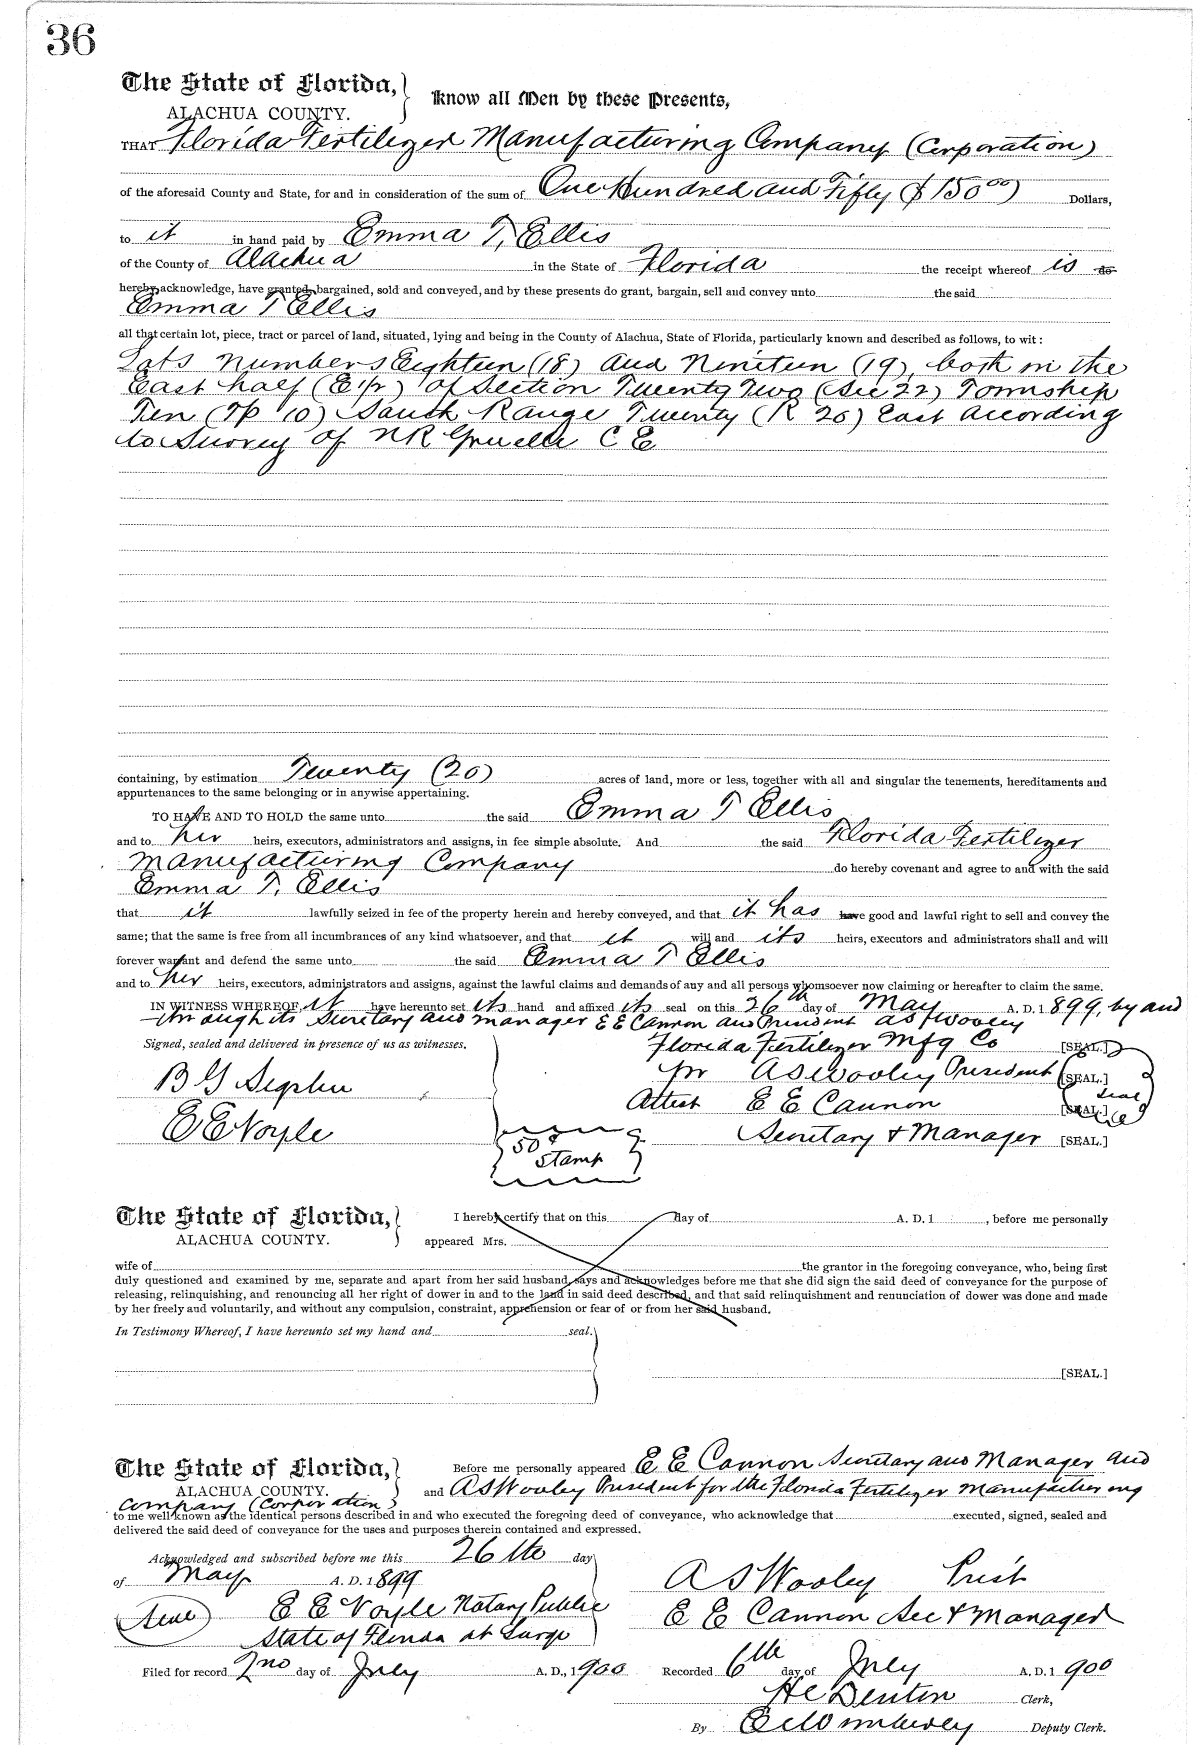 36
The State of Florida,
ALACHUA COUNTY.
Know all Men by these Presents,
THAT Florida Fertilizer Manufacturing Company (Corporation)
of the aforesaid County and State, for and in consideration of the sum of One Hundred and Fifty ($150 00) Dollars,
to it in hand paid by Emma T, Ellis
of the County of Alachua in the State of Florida the receipt whereof is do
hereby acknowledge, have granted, bargained, sold and conveyed, and by these presents do grant, bargain, sell and convey unto the said
Emma T Ellis
all that certain lot, piece, tract or parcel of land, situated, lying and being in the County of Alachua, State of Florida, particularly known and described as follows, to wit:
Lots numbers Eighteen (18) and Nineteen (19), both in the
East half (E½) of Section Twenty Two (Sec 22) Township
Ten (Tp 10) South Range Twenty (R 20) East According
to Survey of N R Gruelle C E
containing, by estimation Twenty (20) acres of land, more or less, together with all and singular the tenements, hereditaments and
appurtenances to the same belonging or in anywise appertaining.
TO HAVE AND TO HOLD the same unto the said Emma T Ellis
and to her heirs, executors, administrators and assigns, in fee simple absolute. And the said Florida Fertilizer
Manufacturing Company do hereby covenant and agree to and with the said
Emma T, Ellis
that it lawfully seized in fee of the property herein and hereby conveyed, and that it has have good and lawful right to sell and convey the
same; that the same is free from all incumbrances of any kind whatsoever, and that it will and its heirs, executors and administrators shall and will
forever warrant and defend the same unto the said Emma T Ellis
and to her heirs, executors, administrators and assigns, against the lawful claims and demands of any and all persons whomsoever now claiming or hereafter to claim the same.
IN WITNESS WHEREOF, it have hereunto set its hand and affixed its seal on this 26th day of May A. D. 1899, by and
through its Secretary and manager E E Cannon and President A S Wooley
Signed, sealed and delivered in presence of us as witnesses.
Florida Fertilizer Mfg Co [SEAL.]
pr A S Wooley President [SEAL.]
Seal
Attest E E Cannon [SEAL.]
Secretary & Manager [SEAL.]
B G
E E Voyle
50¢
Stamp
The State of Florida,
ALACHUA COUNTY.
I hereby certify that on this day of A. D. 1 , before me personally
appeared Mrs.
wife of the grantor in the foregoing conveyance, who, being first
duly questioned and examined by me, separate and apart from her said husband, says and acknowledges before me that she did sign the said deed of conveyance for the purpose of
releasing, relinquishing, and renouncing all her right of dower in and to the land in said deed described, and that said relinquishment and renunciation of dower was done and made
by her freely and voluntarily, and without any compulsion, constraint, apprehension or fear of or from her said husband.
In Testimony Whereof, I have hereunto set my hand and seal.
[SEAL.]
The State of Florida,
ALACHUA COUNTY.
Before me personally appeared E E Cannon Secretary and Manager and
and A S Wooley President for the Florida Fertilizer Manufacturing
Company (Corporation)
to me well known as the identical persons described in and who executed the foregoing deed of conveyance, who acknowledge that executed, signed, sealed and
delivered the said deed of conveyance for the uses and purposes therein contained and expressed.
Acknowledged and subscribed before me this 26th day
of May A. D. 1899
Seal E E Voyle Notary Public
State of Florida at Large
A S Wooley Prest
E E Cannon Sec & Manager
Filed for record 2nd day of July A. D., 1900
Recorded 6th day of July A. D. 1900
H C Denton Clerk,
By Deputy Clerk.